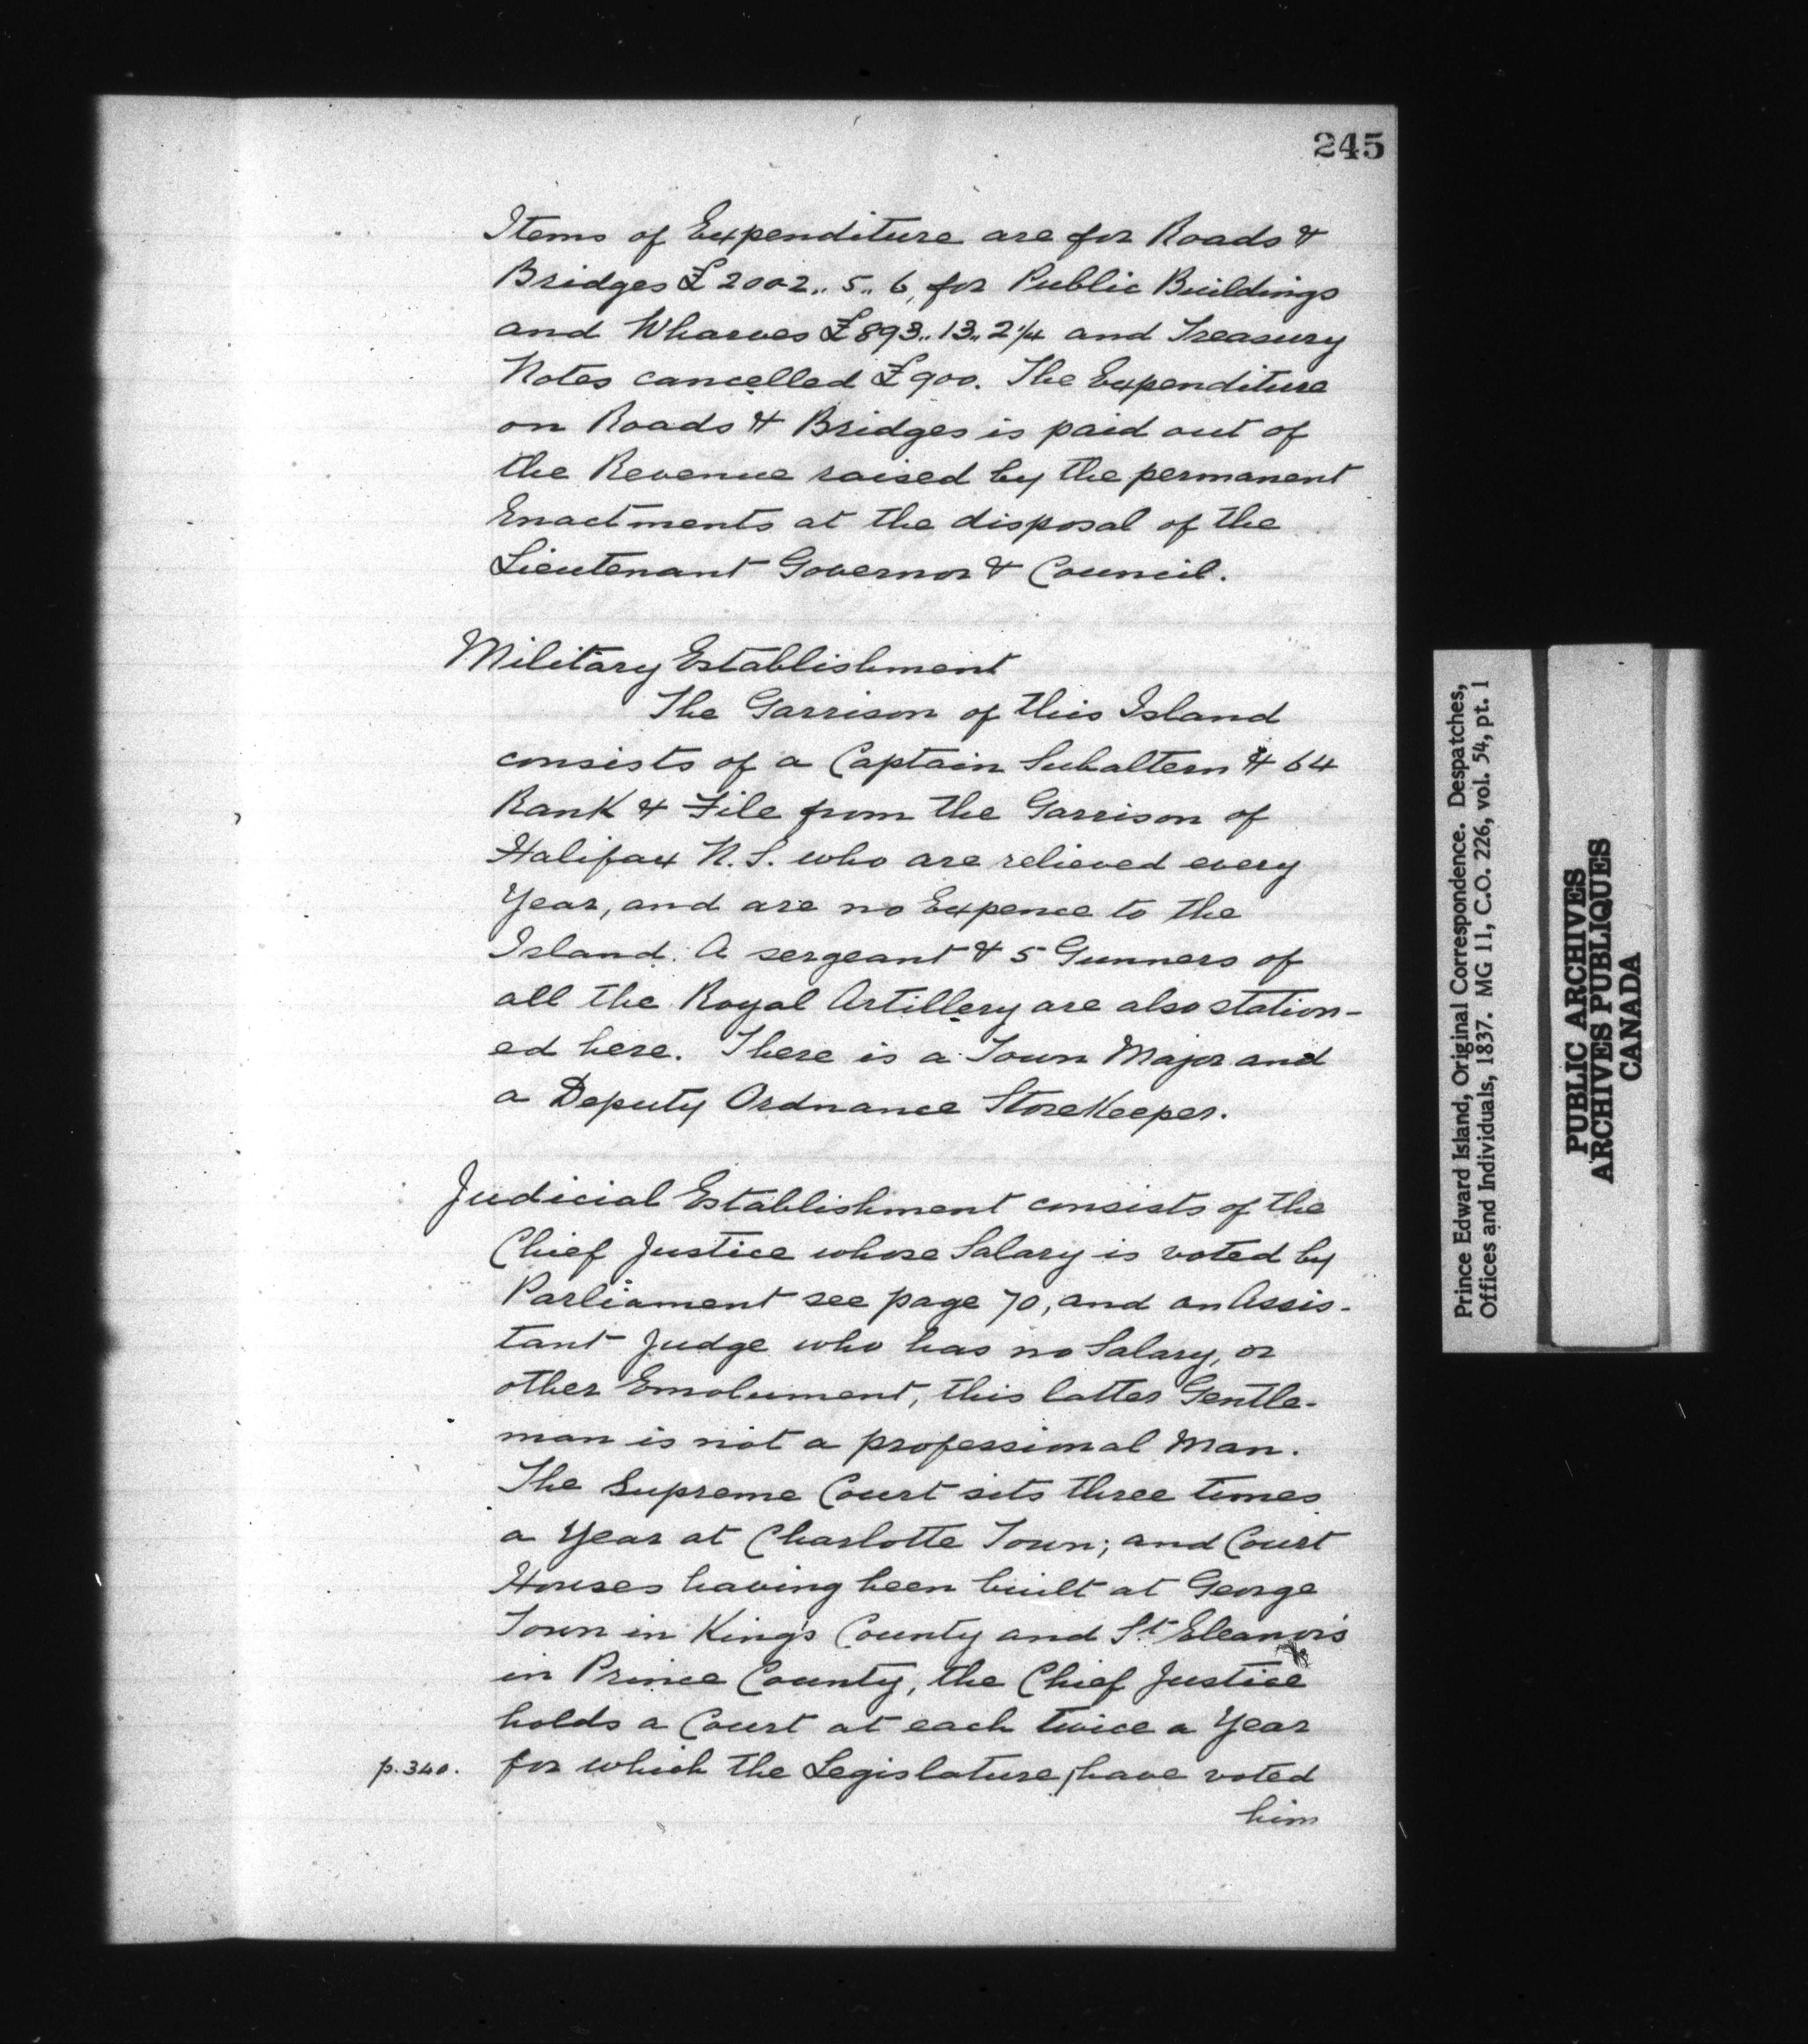 245
Items of Expenditure are for Roads &
Bridges £2002,, 5,, 6, for Public Buildings
and Wharves £893,, 13,, 2¼ and Treasury
Notes cancelled £900. The Expenditure
on Roads & Bridges is paid out of
the Revenue raised by the permanent
Enactments at the disposal of the
Lieutenant Governor & Council.
Military Establishment
The Garrison of this Island
consists of a Captain Subaltern & 64
Rank & File from the Garrison of
Halifax N.S. who are relieved every
Year, and are no Expence to the
Island. A sergeant & 5 Gunners of
all the Royal Artillery are also station-
ed here. There is a Town Major and
a Deputy Ordnance StoreKeeper.
Judicial Establishment consists of the
Chief Justice whose Salary is voted by
Parliament see page 70, and an Assis-
tant Judge who has no Salary, or
other Emolument, this latter Gentle-
man is not a professional Man.
The Supreme Court sits three times
a Year at Charlotte Town; and Court
Houses having been built at George
Town in King's County and St Eleanor's
in Prince County, the Chief Justice
holds a Court at each twice a Year
p. 340. for which the Legislature, have voted
him
Prince Edward Island, Original Correspondence. Despatches,
Offices and Individuals, 1837. MG 11, C.O. 226, vol. 54, pt. 1
PUBLIC ARCHIVES
ARCHIVES PUBLIQUES
CANADA